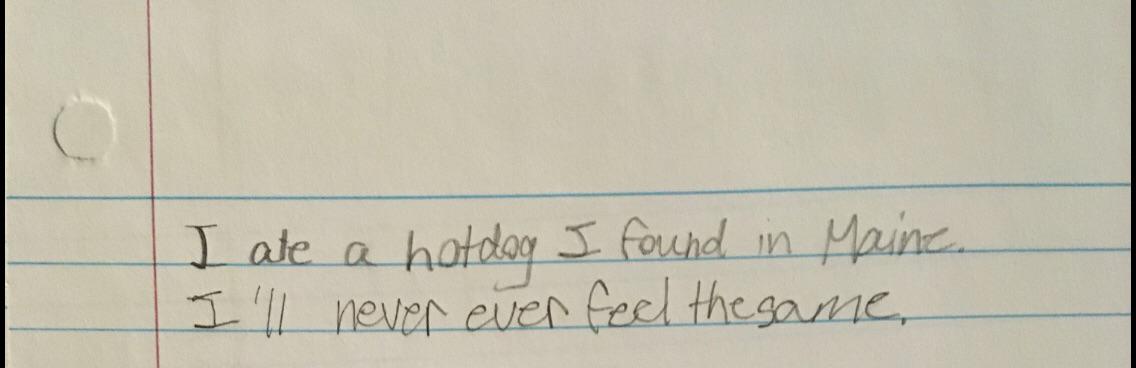 I ate a hotdog I found in Maine.
I'll never ever feel the same.